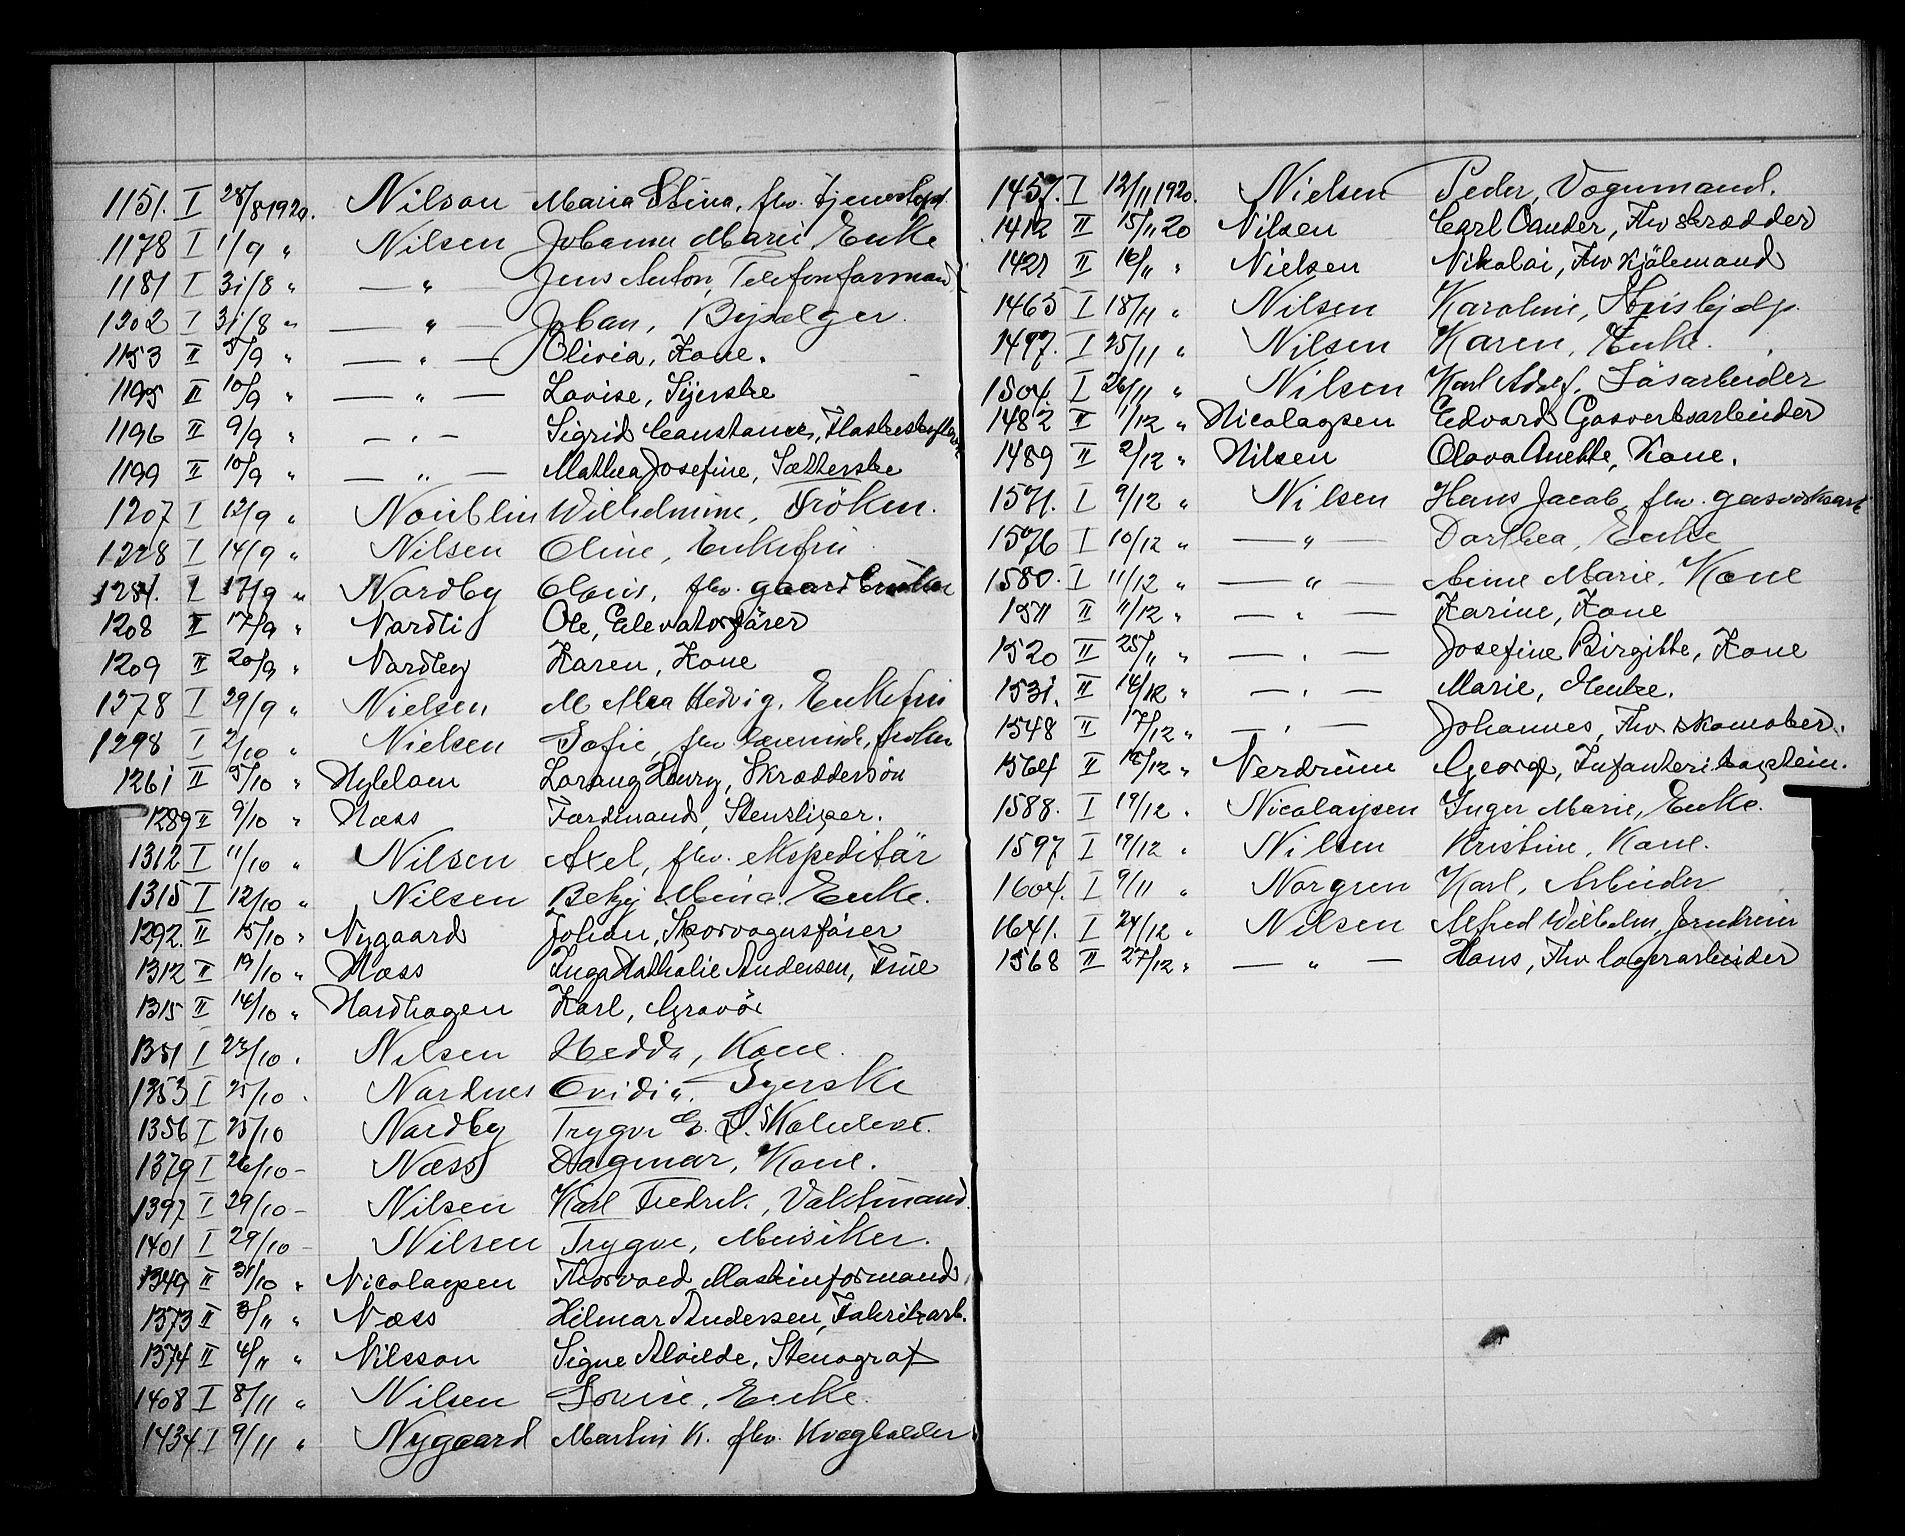 1151. I 28/8 1920. Nilson Maria Stina, fhv. tjenestepi.
1178 I 1/9 " Nilsen Johanne Marie Enke
1181 I 31/8 " — " Jens Anton, Telefonformand
1202 I 31/8 " — " — Johan, Bysælger.
1153 II 5/9 " — " — Olivia, Kone.
1195 II 10/9 " — " — Lovise, Syerske
1196 II 9/9 " — " — Sigrid Constance,
1199 II 10/9 " — " — Mathea Josefine, Sætterske
1207 I 12/9 " Wilhelmine, Frøken.
1228 I 14/9 " Nilsen Oline, Enkefru
1254. I 17/9 " Nordby Olavis, fhv. gaardbruker
1208 II 17/9 " Nordli Ole, Elevatorfører
1209 II 20/9 " Nordby Karen, Kone
1278 I 29/9 " Nielsen M Moa Hedvig, Enkefru
1298 I 2/10 " Nielsen Sofie, fhv. lærerinde, frøken
1261 II 5/10 " Nyblom Lorang Henry, Skræddersøn
1289 II 9/10 " Næss Ferdinand, Stensliper.
1312 I 11/10 " Nilsen Axel, fhv. ekspeditør
1315 I 12/10 " Nilsen Betzy Mina Enke.
1292. II 15/10 " Nygaard Johan, Sporvognsfører
1312 II 19/10 " Næss Inga Nathalie Andersen, Frue
1315 II 14/10 " Nordhagen Karl, Gravør
1351 I 23/10 . Nilsen Hedda, Kone.
1353 I 25/10 . Nordnes Ovidia. Syerske
1356 I 25/10 Nordby Trygve E. S.
1379 I 26/10 – Næss Dagmar, Kone.
1397 I 29/10 – Nilsen Karl Fredrik, Vaktmand.
1401 I 29/10 – Nilsen Trygve, Musiker.
1349 II 31/10 " Nicolaysen Thorvald Maskinformand,
1373 II 3/11 " Næss Hilmar Andersen, Fabrikarb.
1374 II 4/11 " Nilsson Signe Alvilde, Stenograf
1408 I 8/11 " Nilsen Lovise, Enke.
1434. I 9/11 " Nygaard Martin K. fhv. Kvægholder
1457. I 12/11 1920. Nielsen Peder, Vognmand.
1412 II 15/11 20 Nilsen Carl Cander, Fhv skrædder
1421 II 16/11 " Nielsen Nikolai, Fhv Kjølemand
1463 I 18/11 " Nilsen Karoline, Hushjælp.
1497. I 25/11 " Nilsen Karen, Enke.
1504. I 26/11 " Nilsen Karl Adolf, Løsarbeider
1482 II 1/12 " Nicolaysen Edvard Gasverksarbeider
1489 II 2/12 " Nilsen Olava Anette, Kone.
1571. I 9/12 " Nilsen Hans Jacob, fhv. gasverksarb
1576 I 10/12 " — " — Dorthea, Enke
1580. I 11/12 " — " — Anne Marie, Kone
1511 II 11/12 " — " — Karine, Kone
1520 II 25/11 " — " — Josefine Birgitte, Kone
1531. II 14/12 " — " — Marie, Enke.
1548 II 17/12 " — " — Johannes, Fhv skomaker.
1564 II 18/12 " Nerdrum Georg, Infanterikaptein.
1588. I 19/12 . Nicolaysen Inger Marie, Enke.
1597 I 19/12 " Nilsen Kristine, Kone.
1604. I 9/11 " Norgren Karl, Arbeider
1641. I 24/12 " Nilsen Alfred Wilhelm, Jerndreier
1568 II 27/12 " — " — Hans, Fhv lagerarbeider